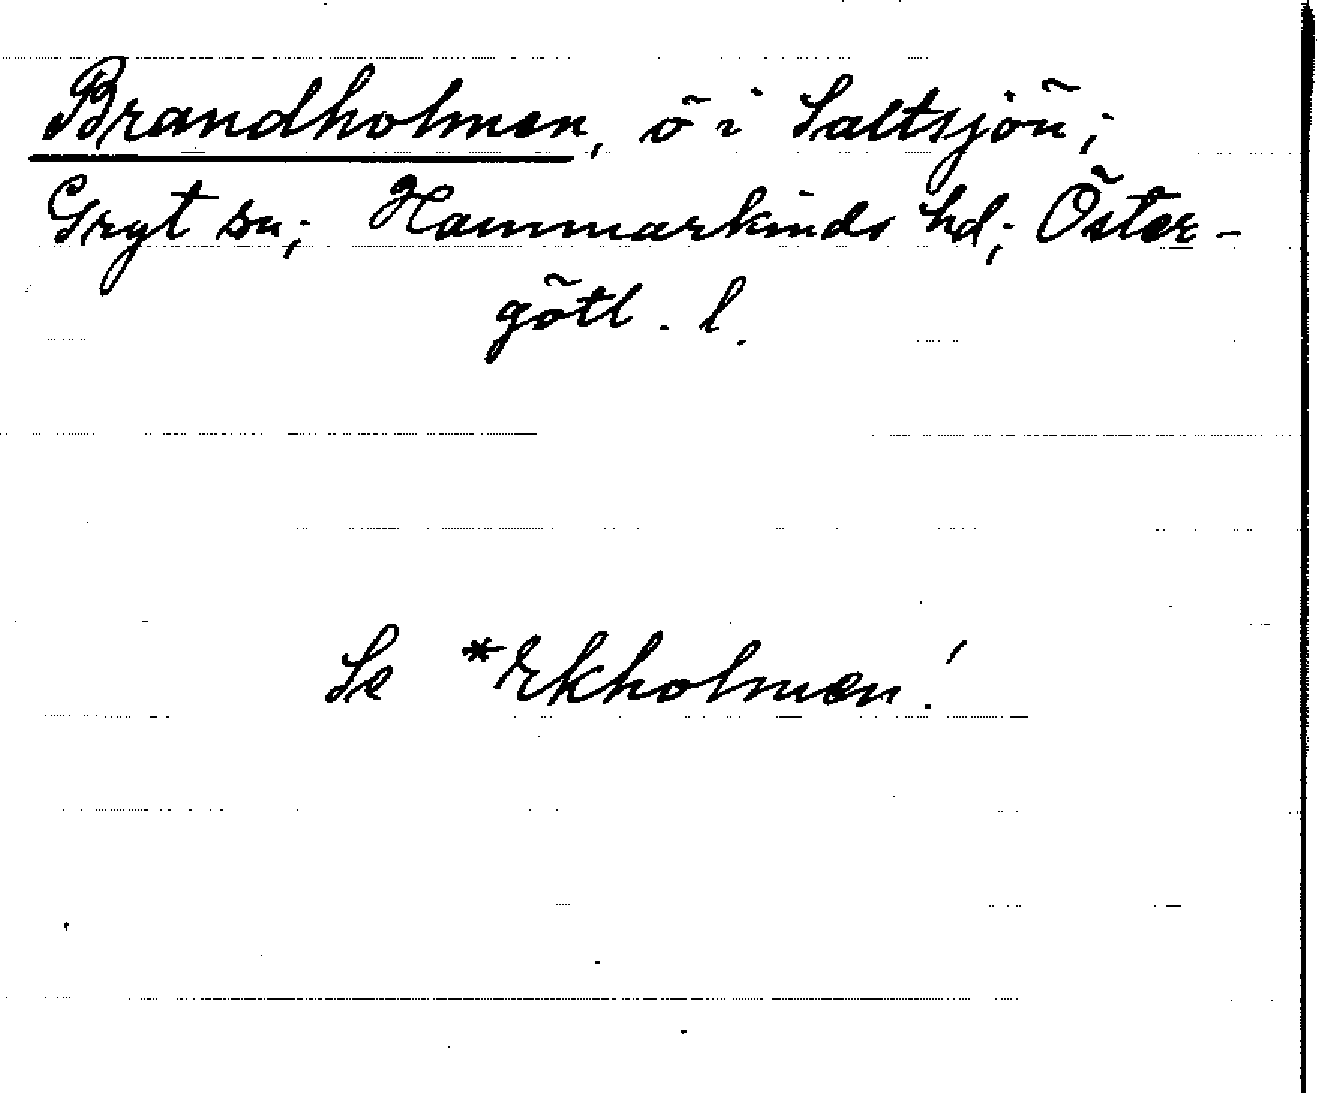 Brandholmen, ö i Saltsjön;
Gryt sn; Hammarkinds hd; Öster-
götl. l.
Se *Ekholmen!